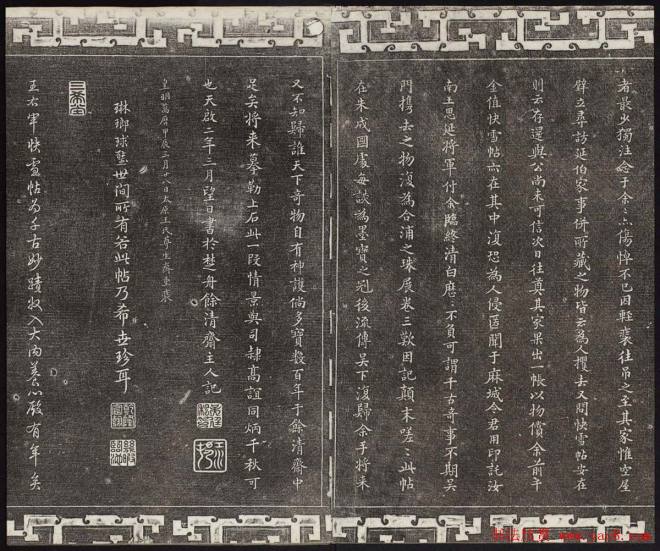 者最少獨注念于余〻亦傷悼不已因輕裘往吊之至其家惟空屋
壁立尋訪延伯家事併所藏之物皆云為人攫去又問快雪帖安在
則云存還與公尚未可信次日往奠其家果出一帳以物償余前午
金值快雪帖亦在其中復恐為人侵匿聞于麻城令君用印託汝
南王思延將軍付余臨終清白麽〻不負可謂千古奇事不期吳
門携去之物復為合浦之珠展卷三歎因記顛末嗟〻此帖
在朱成國處每談為墨寶之冠後流傳吳下復歸余手將來
又不知歸誰天下奇物自有神護倘多寶數百年于餘清齋中
足矣將來摹勒上石此一段情景與司隸高誼同炳千秋可
也天啟二年三月望日書於楚舟餘清齋主人記
皇明萬曆甲辰三月十八日太原王氏尊生齋重裝
琳瑯球璧世間所有若此帖乃希世珍耳
三希堂
王右軍快雪帖為千古妙蹟收入大內養心殿有年矣